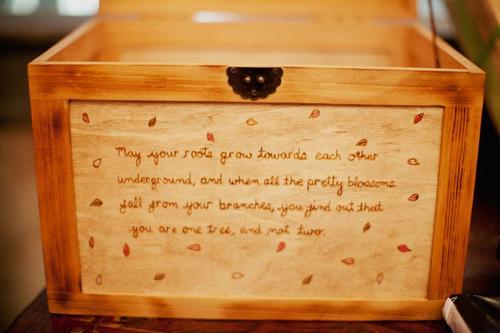 May your roots grow towards each other
underground, and when all the pretty blossoms
fall from your branches, you find out that
you are one tree, and not two.